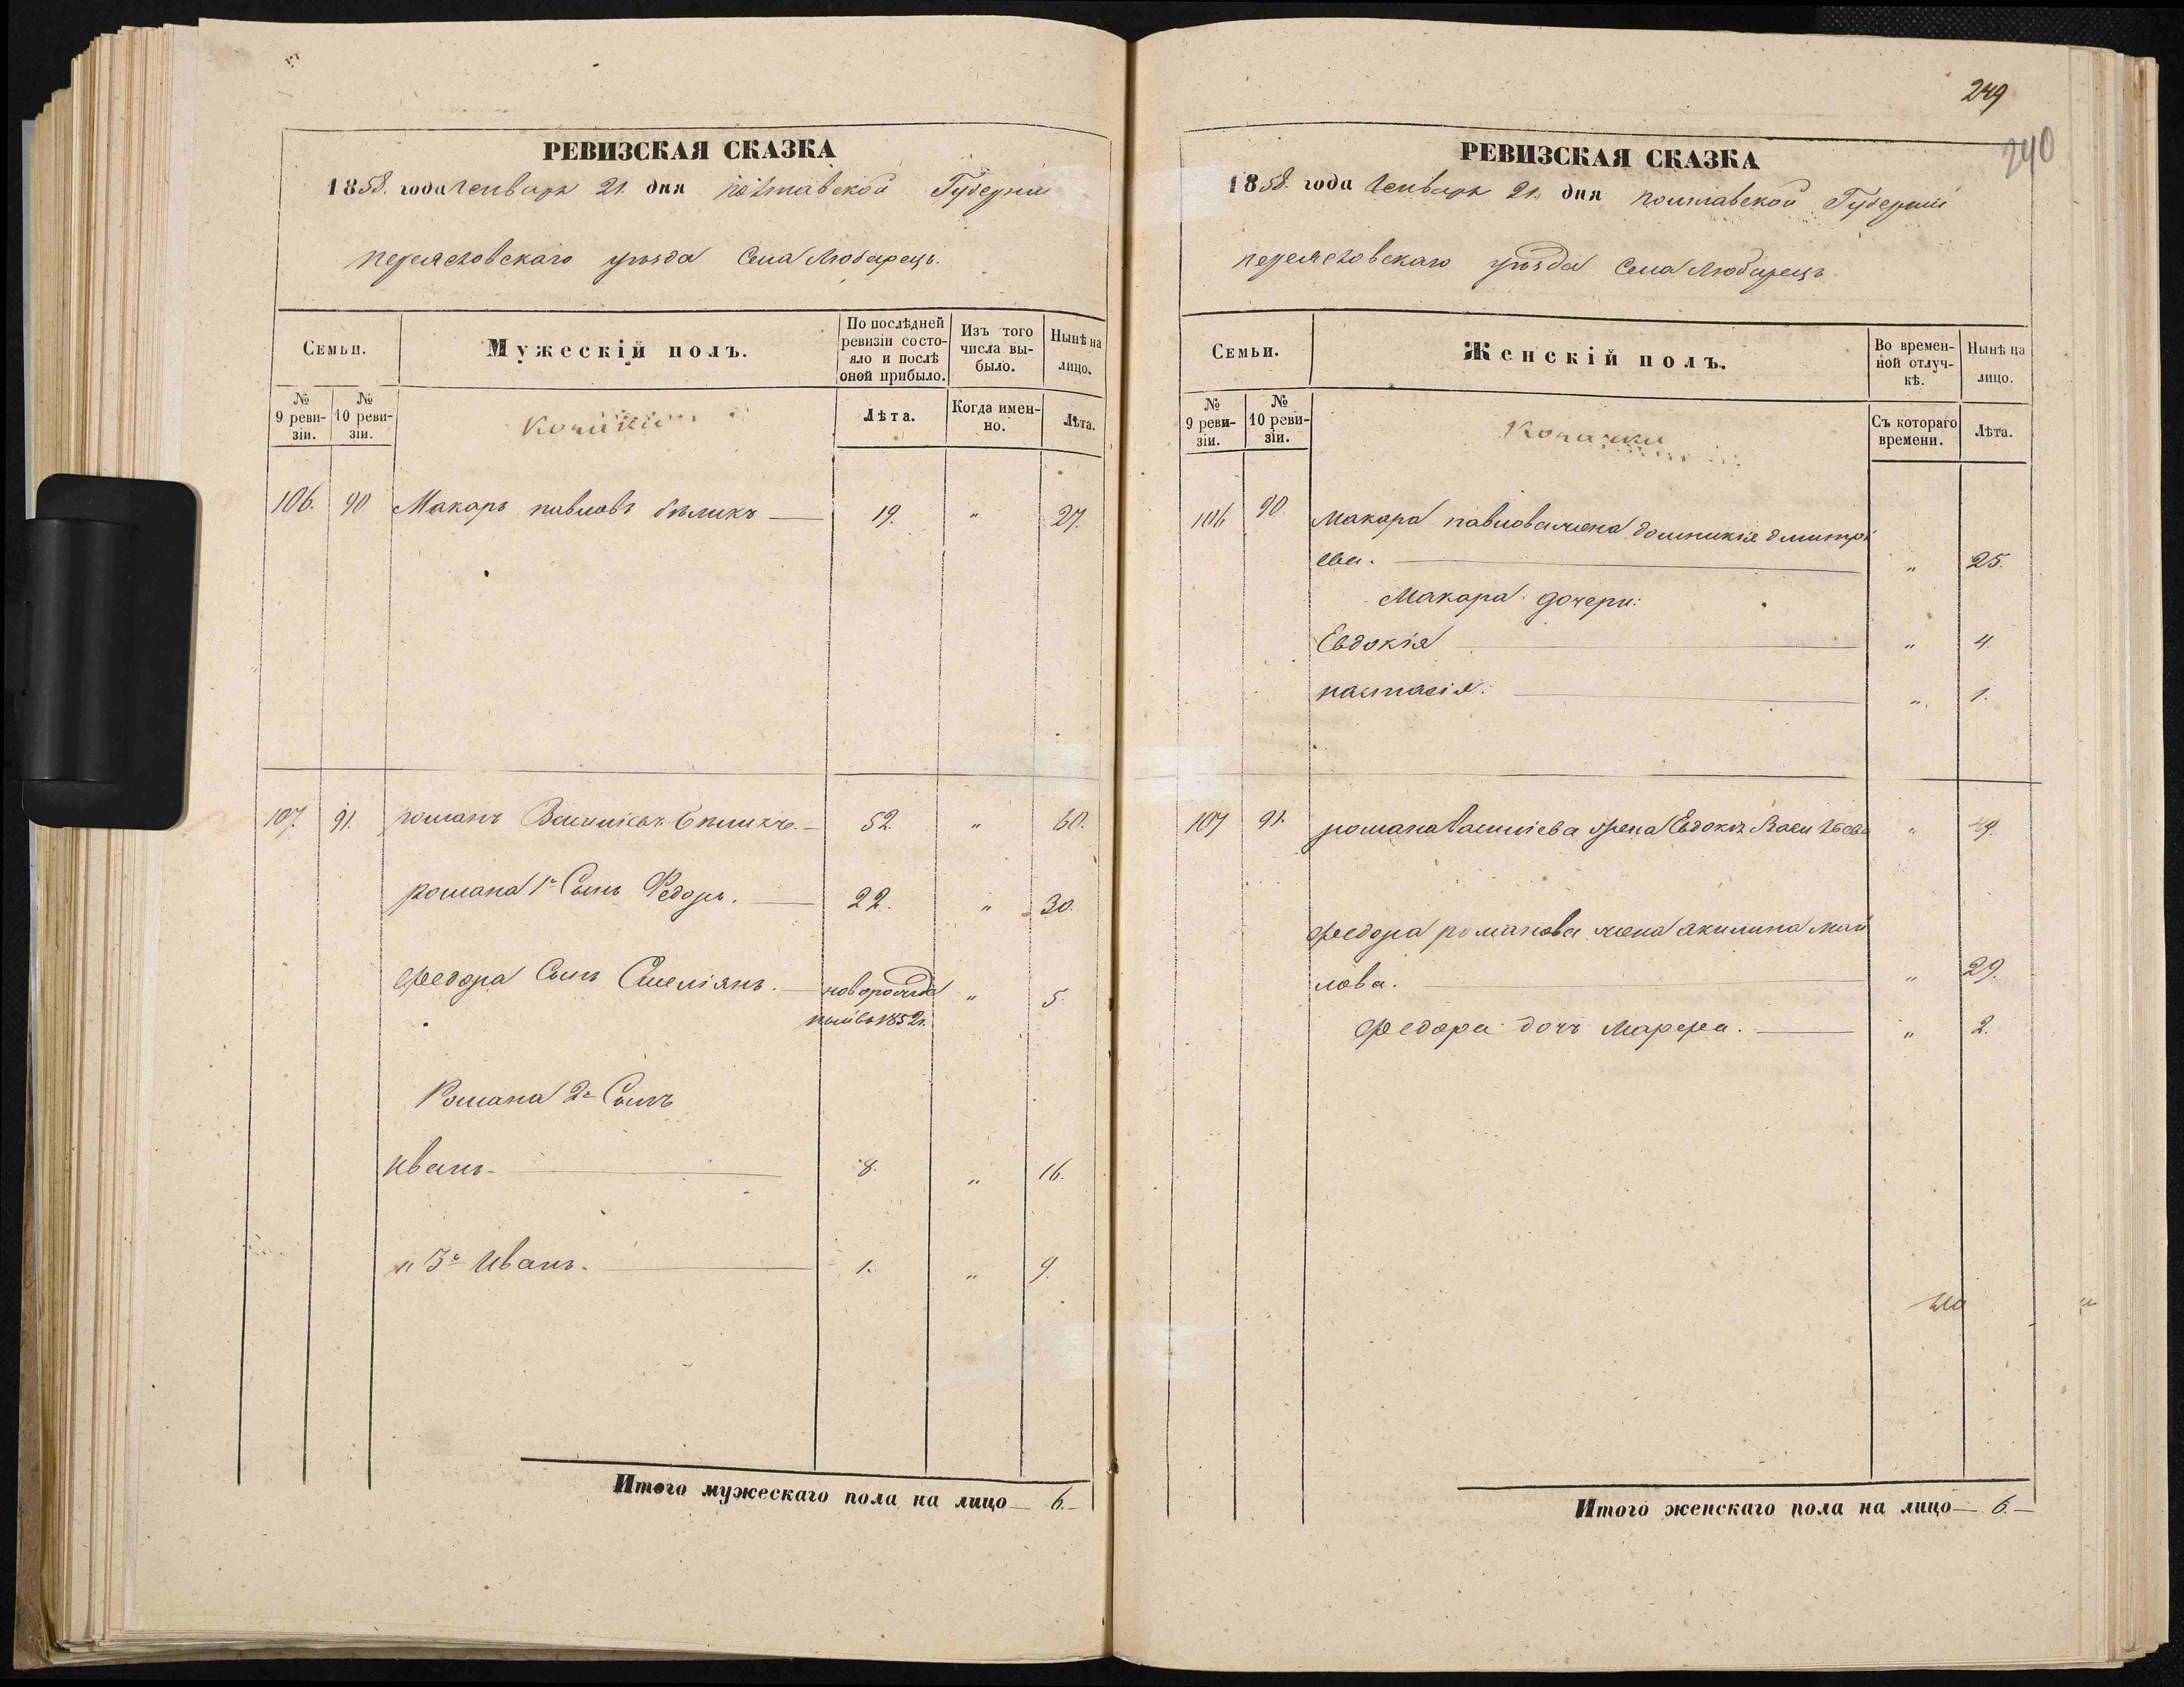 249
240
РЕВИЗСКАЯ СКАЗКА
1858. года Генваря 21. дня полтавской Губерніи
переясловскаго уѣзда Села Любарецъ.
Семьи.
Мужескій полъ.
По послѣдней ревизіи состояло и послѣ оной прибыло.
Изъ того числа выбыло.
Нынѣ на лицо.
№ 9 ревизіи.
№ 10 ревизіи.
Лѣта.
Когда именно.
Лѣта.
106. 90 Макаръ павловъ бѣликъ — 19. " 27.
107. 91. романъ Василіевъ Бѣликъ. — 52. " 60.
романа 1й Сынъ Федоръ. — 22. " 30.
Федора Сынъ Емеліянъ. — новорожде " 5.
ный въ 1852г.
Романа 2й Сынъ
иванъ — 8. " 16.
" 3й Иванъ. — 1. " 9.
Итого мужескаго пола на лицо — 6. —
РЕВИЗСКАЯ СКАЗКА
1858. года Генваря 21. дня полтавской Губерніи
переясловскаго уѣзда Села Любарецъ.
Семьи.
Женскій полъ.
Во временной отлучкѣ.
Нынѣ на лицо.
№ 9 ревизіи.
№ 10 ревизіи.
Козачки
Съ котораго времени.
Лѣта.
106 90 Макара павлова жена домникія дмитрі
ева. — " 25.
Макара дочери:
Евдокія — " 4.
настасія. — " 1.
107 91. романа Василіева жена Евдокія " 49.
Федора романова жена акилина
лова. — " 29.
Федора дочь Марфа. — " 2.
Итого женскаго пола на лицо — 6. —